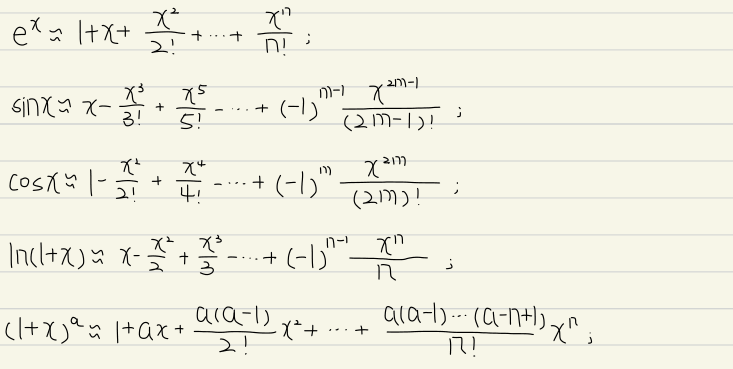 e^x ≈ 1+x+ x²/2! + ⋯ + xⁿ/n! ;
sinx ≈ x - x³/3! + x⁵/5! - ⋯ + (-1)^(m-1) x^(2m-1)/(2m-1)! ;
cosx ≈ 1 - x²/2! + x⁴/4! - ⋯ + (-1)^m x^(2m)/(2m)! ;
ln(1+x) ≈ x - x²/2 + x³/3 - ⋯ + (-1)^(n-1) xⁿ/n ;
(1+x)^a ≈ 1+ax+ a(a-1)/2! x² + ⋯ + a(a-1)⋯(a-n+1)/n! xⁿ ;